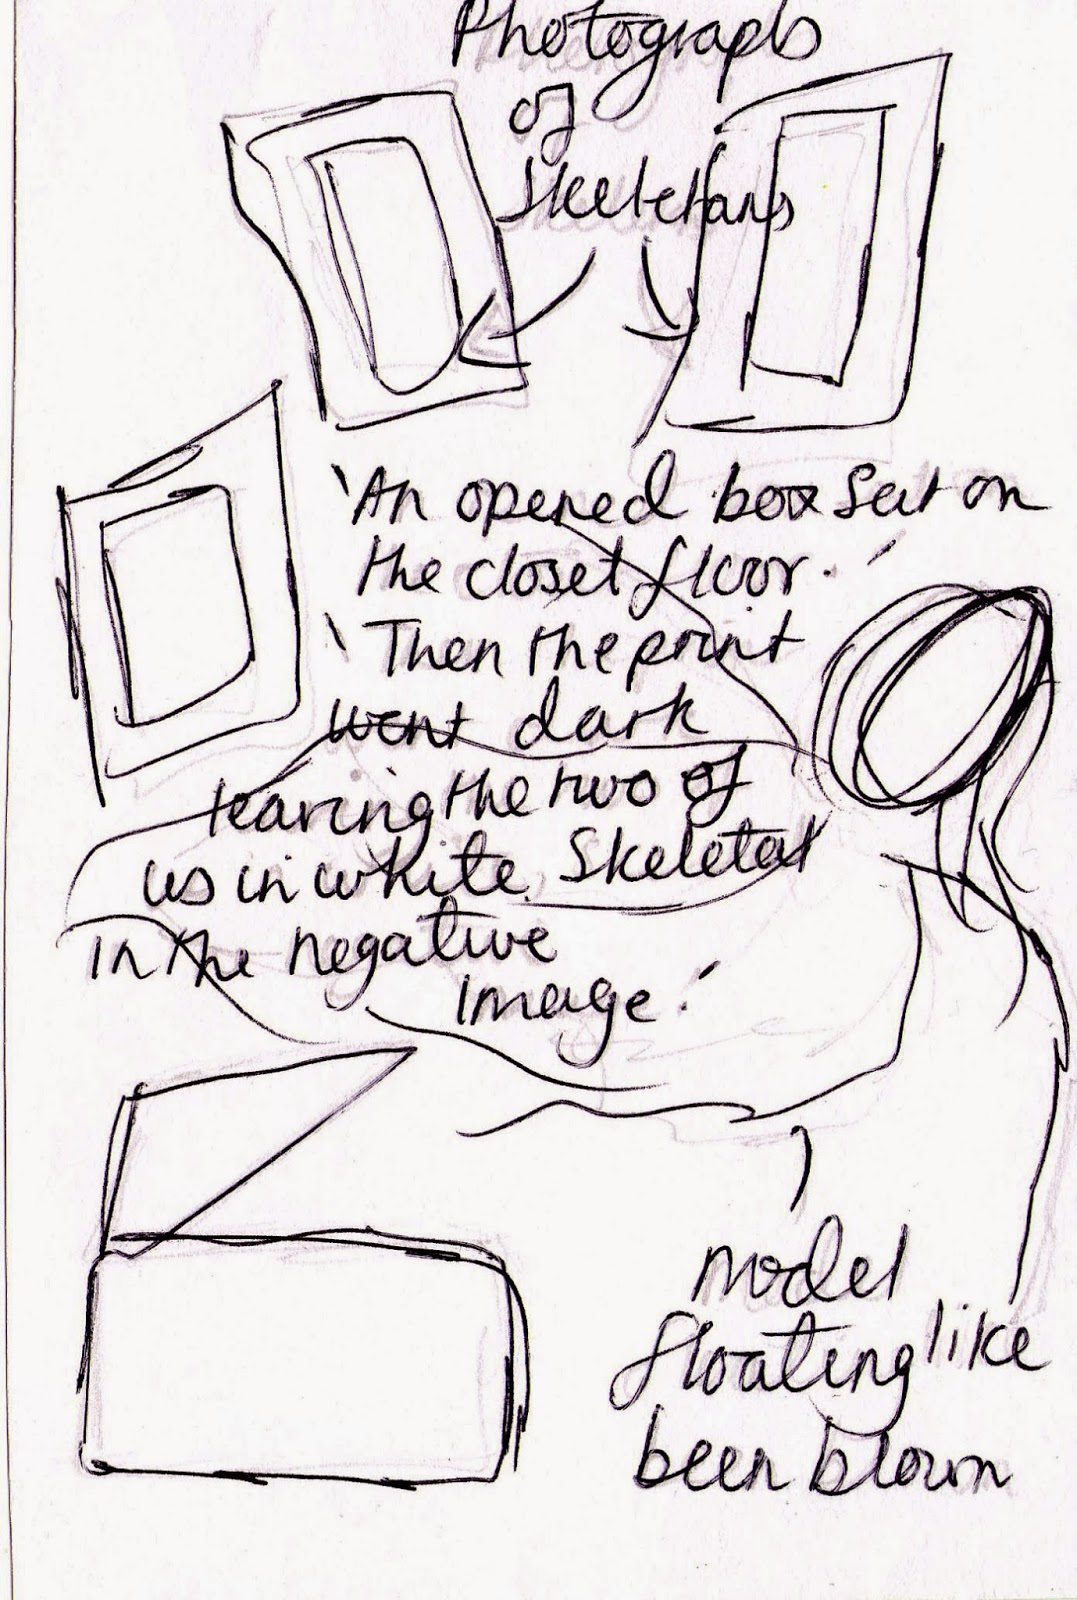 Photographs
of
Skeletans
'An opened box sat on
the closet floor.'
'Then the print
went dark
leaving the two of
us in white. Skeletal
in the negative
image.'
model
floating like
been blown